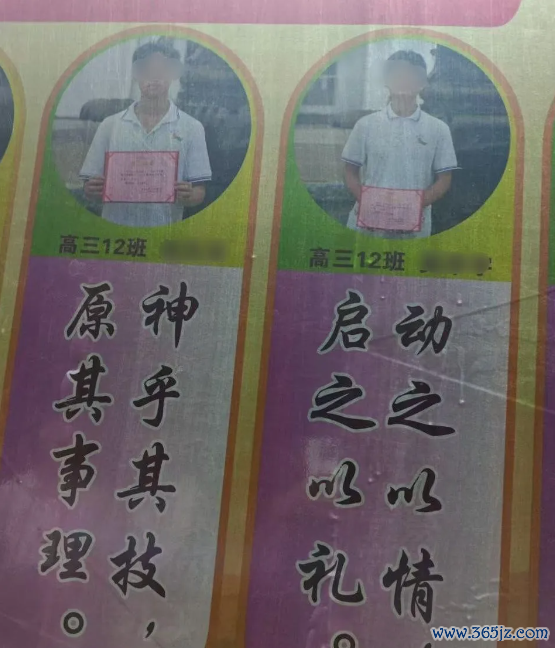 高三12班
神乎其技，
原其事理。
高三12班
动之以情，
启之以礼。
www.365jz.com